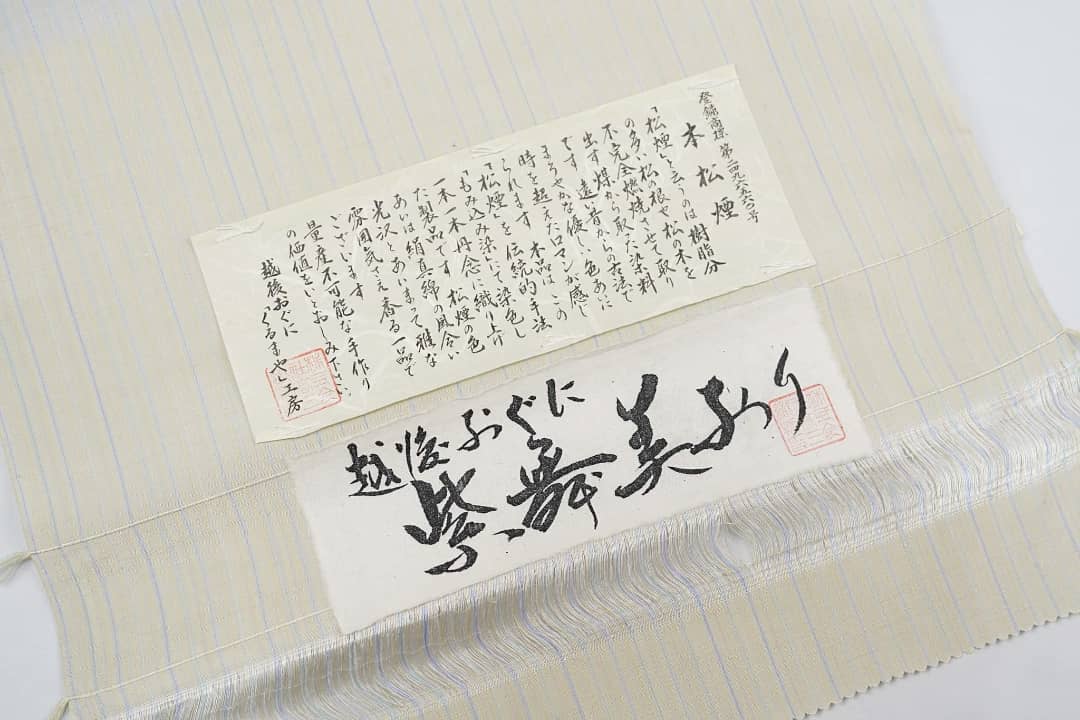 登録商標 第二四九六九六号
本松煙
「松煙」と云うのは樹脂分
の多い松の根や松の木を
不完全燃焼させて取り
出す煤から取った染料
です 遠い昔からの古法で
まろやかな優しい色あいに
時を超えたロマンが感じ
られます 本品は この
「松煙」を伝統的手法
「もみ込み染」にて染色し
一本一本丹念に織り上げ
た製品です 松煙の色
あいは絹真綿の風合い
光沢とあいまって雅な
雰囲気さえ香る一品で
ございます
量産不可能な手作り
の価値をいとおしみ下さい
越後おぐに
「くるまや」工房
越後おぐに
紫舞美おり